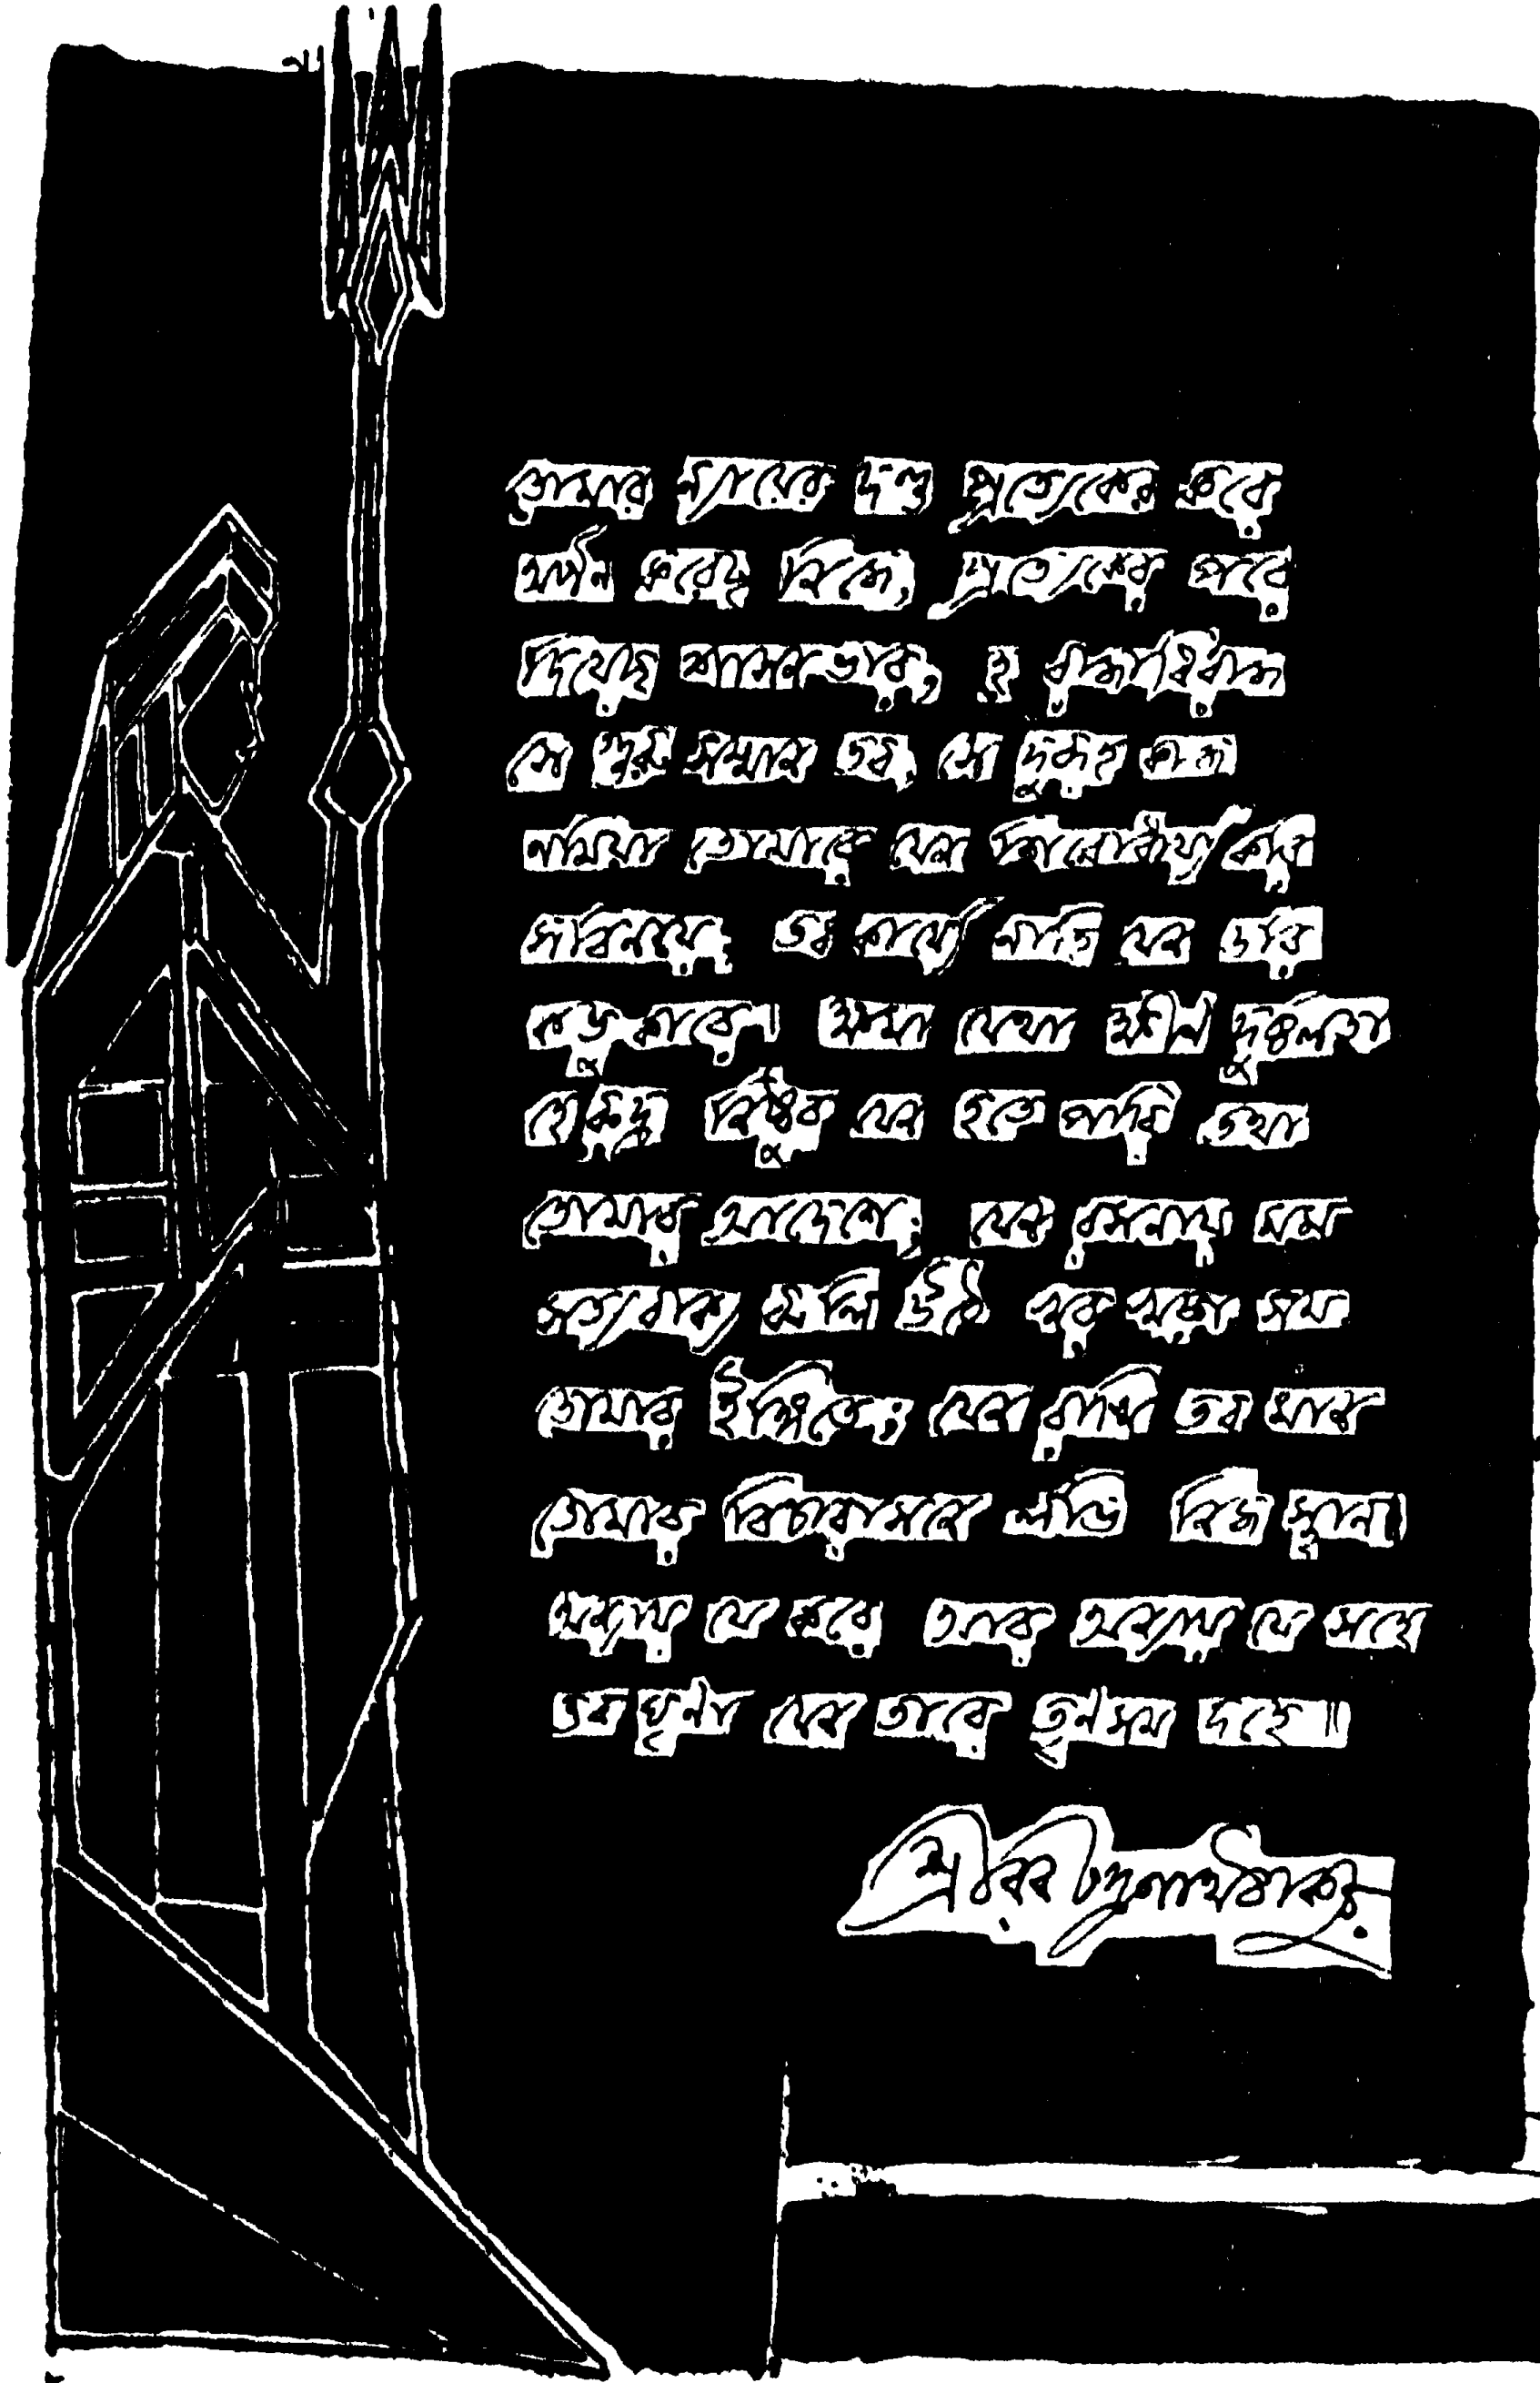 তোমার ন্যায়ের দণ্ড প্রত্যেকের করে
অর্পন করেছ নিজে, প্রত্যেকের পরে
দিয়েছ শাসনভার, হে রাজাধিরাজ
সে গুরু সম্মান তব, সে দুরূহ কাজ
নমিয়া তোমারে যেন শিরোধার্য্য করি
সবিনয়ে; তব কার্য্যে নাহি যেন ডরি
কভু কারে। ক্ষমা যেথা ক্ষীণ দুর্ব্বলতা
হে রুদ্র নিষ্ঠুর যেন হতে পারি তথা
তোমার আদেশে; যেন রসনায় মম
সত্যবাক্য ঝলি উঠে খর খড়্গ সম
তোমার ইঙ্গিতে; যেন রাখি তব মান
তোমার বিচারাসনে লভি নিজ স্থান।
অন্যায় যে করে আর অন্যায় যে সহে
তব ঘৃণা যেন তারে তৃণসম দহে॥
শ্রীরবীন্দ্রনাথ ঠাকুর